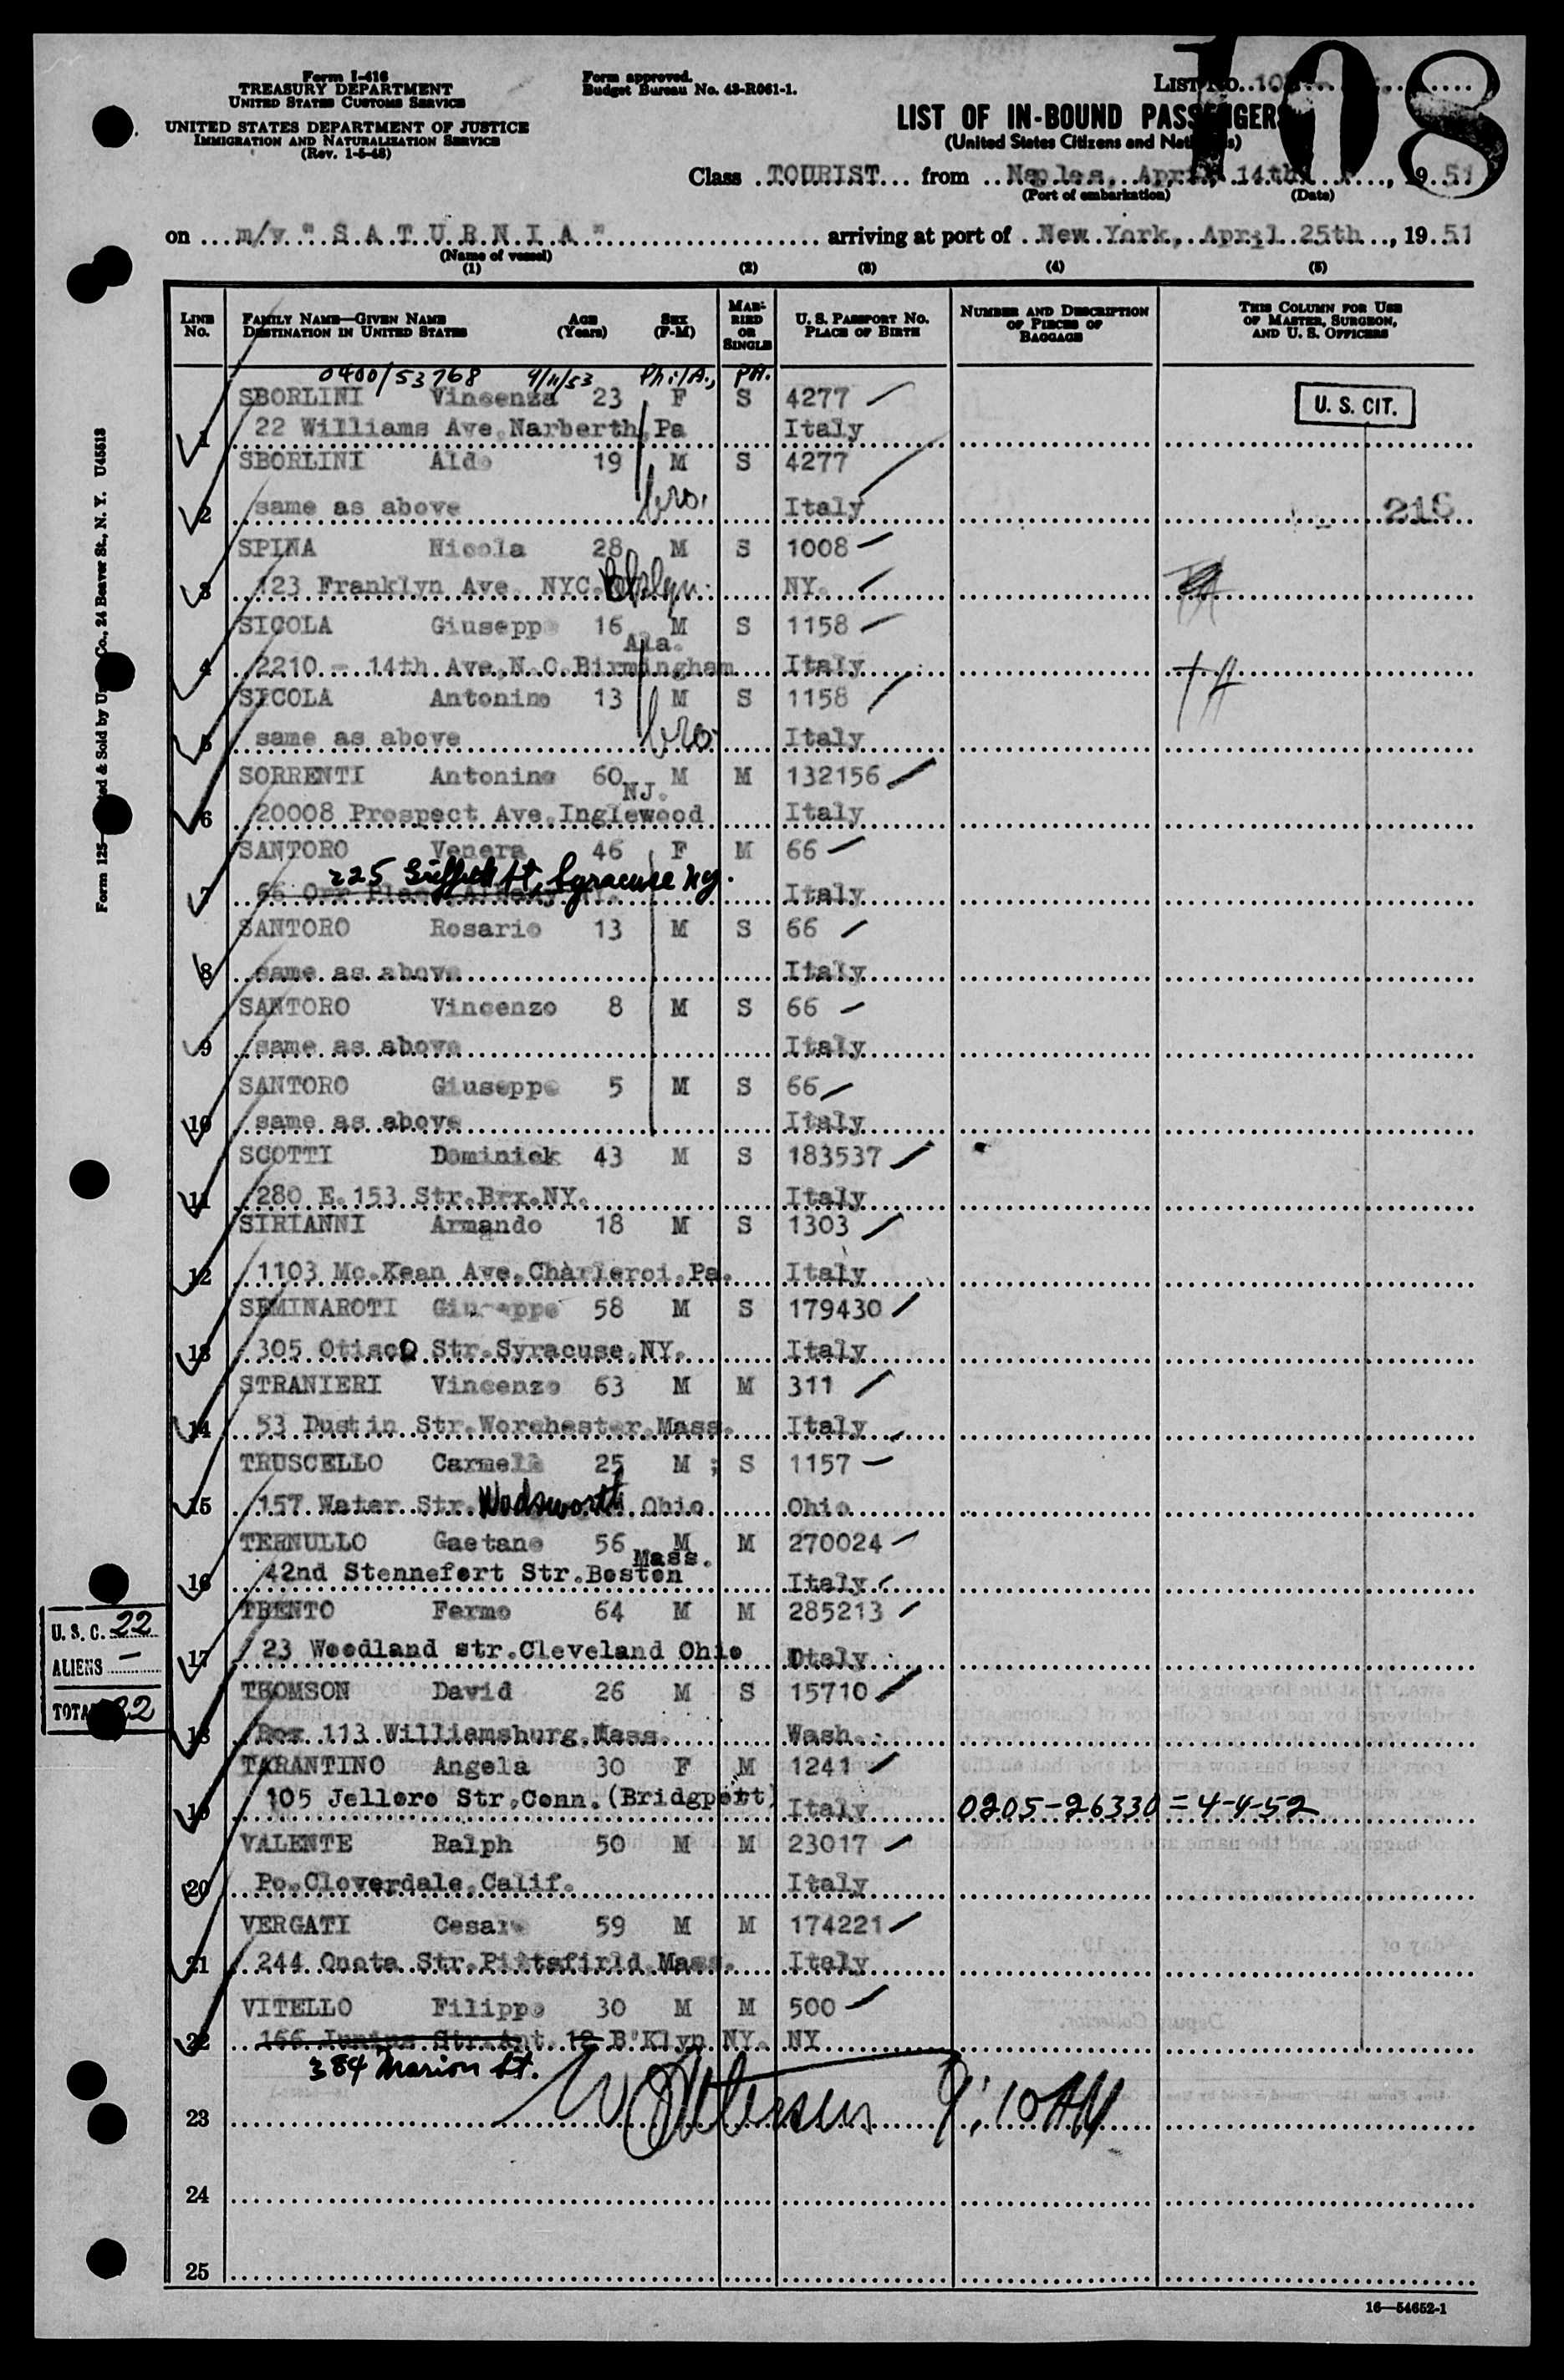 Form I-416
TREASURY DEPARTMENT
UNITED STATES CUSTOMS SERVICE
UNITED STATES DEPARTMENT OF JUSTICE
IMMIGRATION AND NATURALIZATION SERVICE
(Rev. 1-5-48)
Form approved.
Budget Bureau No. 43-R061-1.
LIST NO. 108
108
LIST OF IN-BOUND PASSENGERS
(United States Citizens and Nationals)
Class TOURIST from Naples, April, 14th, 1951
(Port of embarkation) (Date)
on m/v "SATURNIA" arriving at port of New York, April 25th, 1951
(Name of vessel)
(1) (2) (3) (4) (5)
LINE No. FAMILY NAME—GIVEN NAME DESTINATION IN UNITED STATES AGE (Years) SEX (F-M) MARRIED OR SINGLE U. S. PASSPORT NO. PLACE OF BIRTH NUMBER AND DESCRIPTION OF PIECES OF BAGGAGE THIS COLUMN FOR USE OF MASTER, SURGEON, AND U. S. OFFICERS
0400/53768 9/11/53 Phi/A., PA.
SBORLINI Vincenza 23 F S 4277 U. S. CIT.
1 22 Williams Ave.Narberth,Pa Italy
SBORLINI Aldo 19 M S 4277
2 same as above bro. Italy 216
SPINA Nicola 28 M S 1008
3 123 Franklyn Ave. NYC. Bklyn. NY.
SICOLA Giuseppe 16 M S 1158
Ala.
4 2210 - 14th Ave.N.C.Birmingham Italy
SICOLA Antonino 13 M S 1158
5 same as above bro. Italy
SORRENTI Antonino 60 M M 132156
NJ.
6 20008 Prospect Ave.Inglewood Italy
SANTORO Venera 46 F M 66
225 Griffith St, Syracuse Ny.
7 66 Orr Place, Albany NY. Italy
SANTORO Rosario 13 M S 66
8 same as above Italy
SANTORO Vincenzo 8 M S 66
9 same as above Italy
SANTORO Giuseppe 5 M S 66
10 same as above Italy
SCOTTI Dominick 43 M S 183537
11 280 E. 153 Str.Brx.NY. Italy
SIRIANNI Armando 18 M S 1303
12 1103 Mc.Kean Ave.Charleroi.Pa. Italy
SEMINAROTI Giuseppe 58 M S 179430
13 305 Otisco Str.Syracuse.NY. Italy
STRANIERI Vincenzo 63 M M 311
14 53 Dustin Str.Worchester.Mass. Italy
TRUSCELLO Carmela 25 M S 1157
15 157 Water Str. Wadsworth. Ohio Ohio
TERNULLO Gaetano 56 M M 270024
Mass.
16 42nd Stennefort Str.Boston Italy
TRENTO Fermo 64 M M 285213
17 23 Woodland str.Cleveland Ohio Italy
THOMSON David 26 M S 15710
18 Box 113 Williamsburg.Mass. Wash.
TARANTINO Angela 30 F M 1241
19 105 Jellore Str.Conn.(Bridgport) Italy 0205-26330 = 4-4-52
VALENTE Ralph 50 M M 23017
20 Po.Cloverdale.Calif. Italy
VERGATI Cesare 59 M M 174221
21 244 Onota Str.Pittsfirld.Mass. Italy
VITELLO Filippo 30 M M 500
22 166 Junius Str.Apt. 12 B'Klyn NY. NY
384 Marion St.
23 9:10 AM
24
25
16—54652-1
U. S. C. 22
ALIENS —
TOTAL 22
Form 125 24 Beaver St., N. Y. U4513